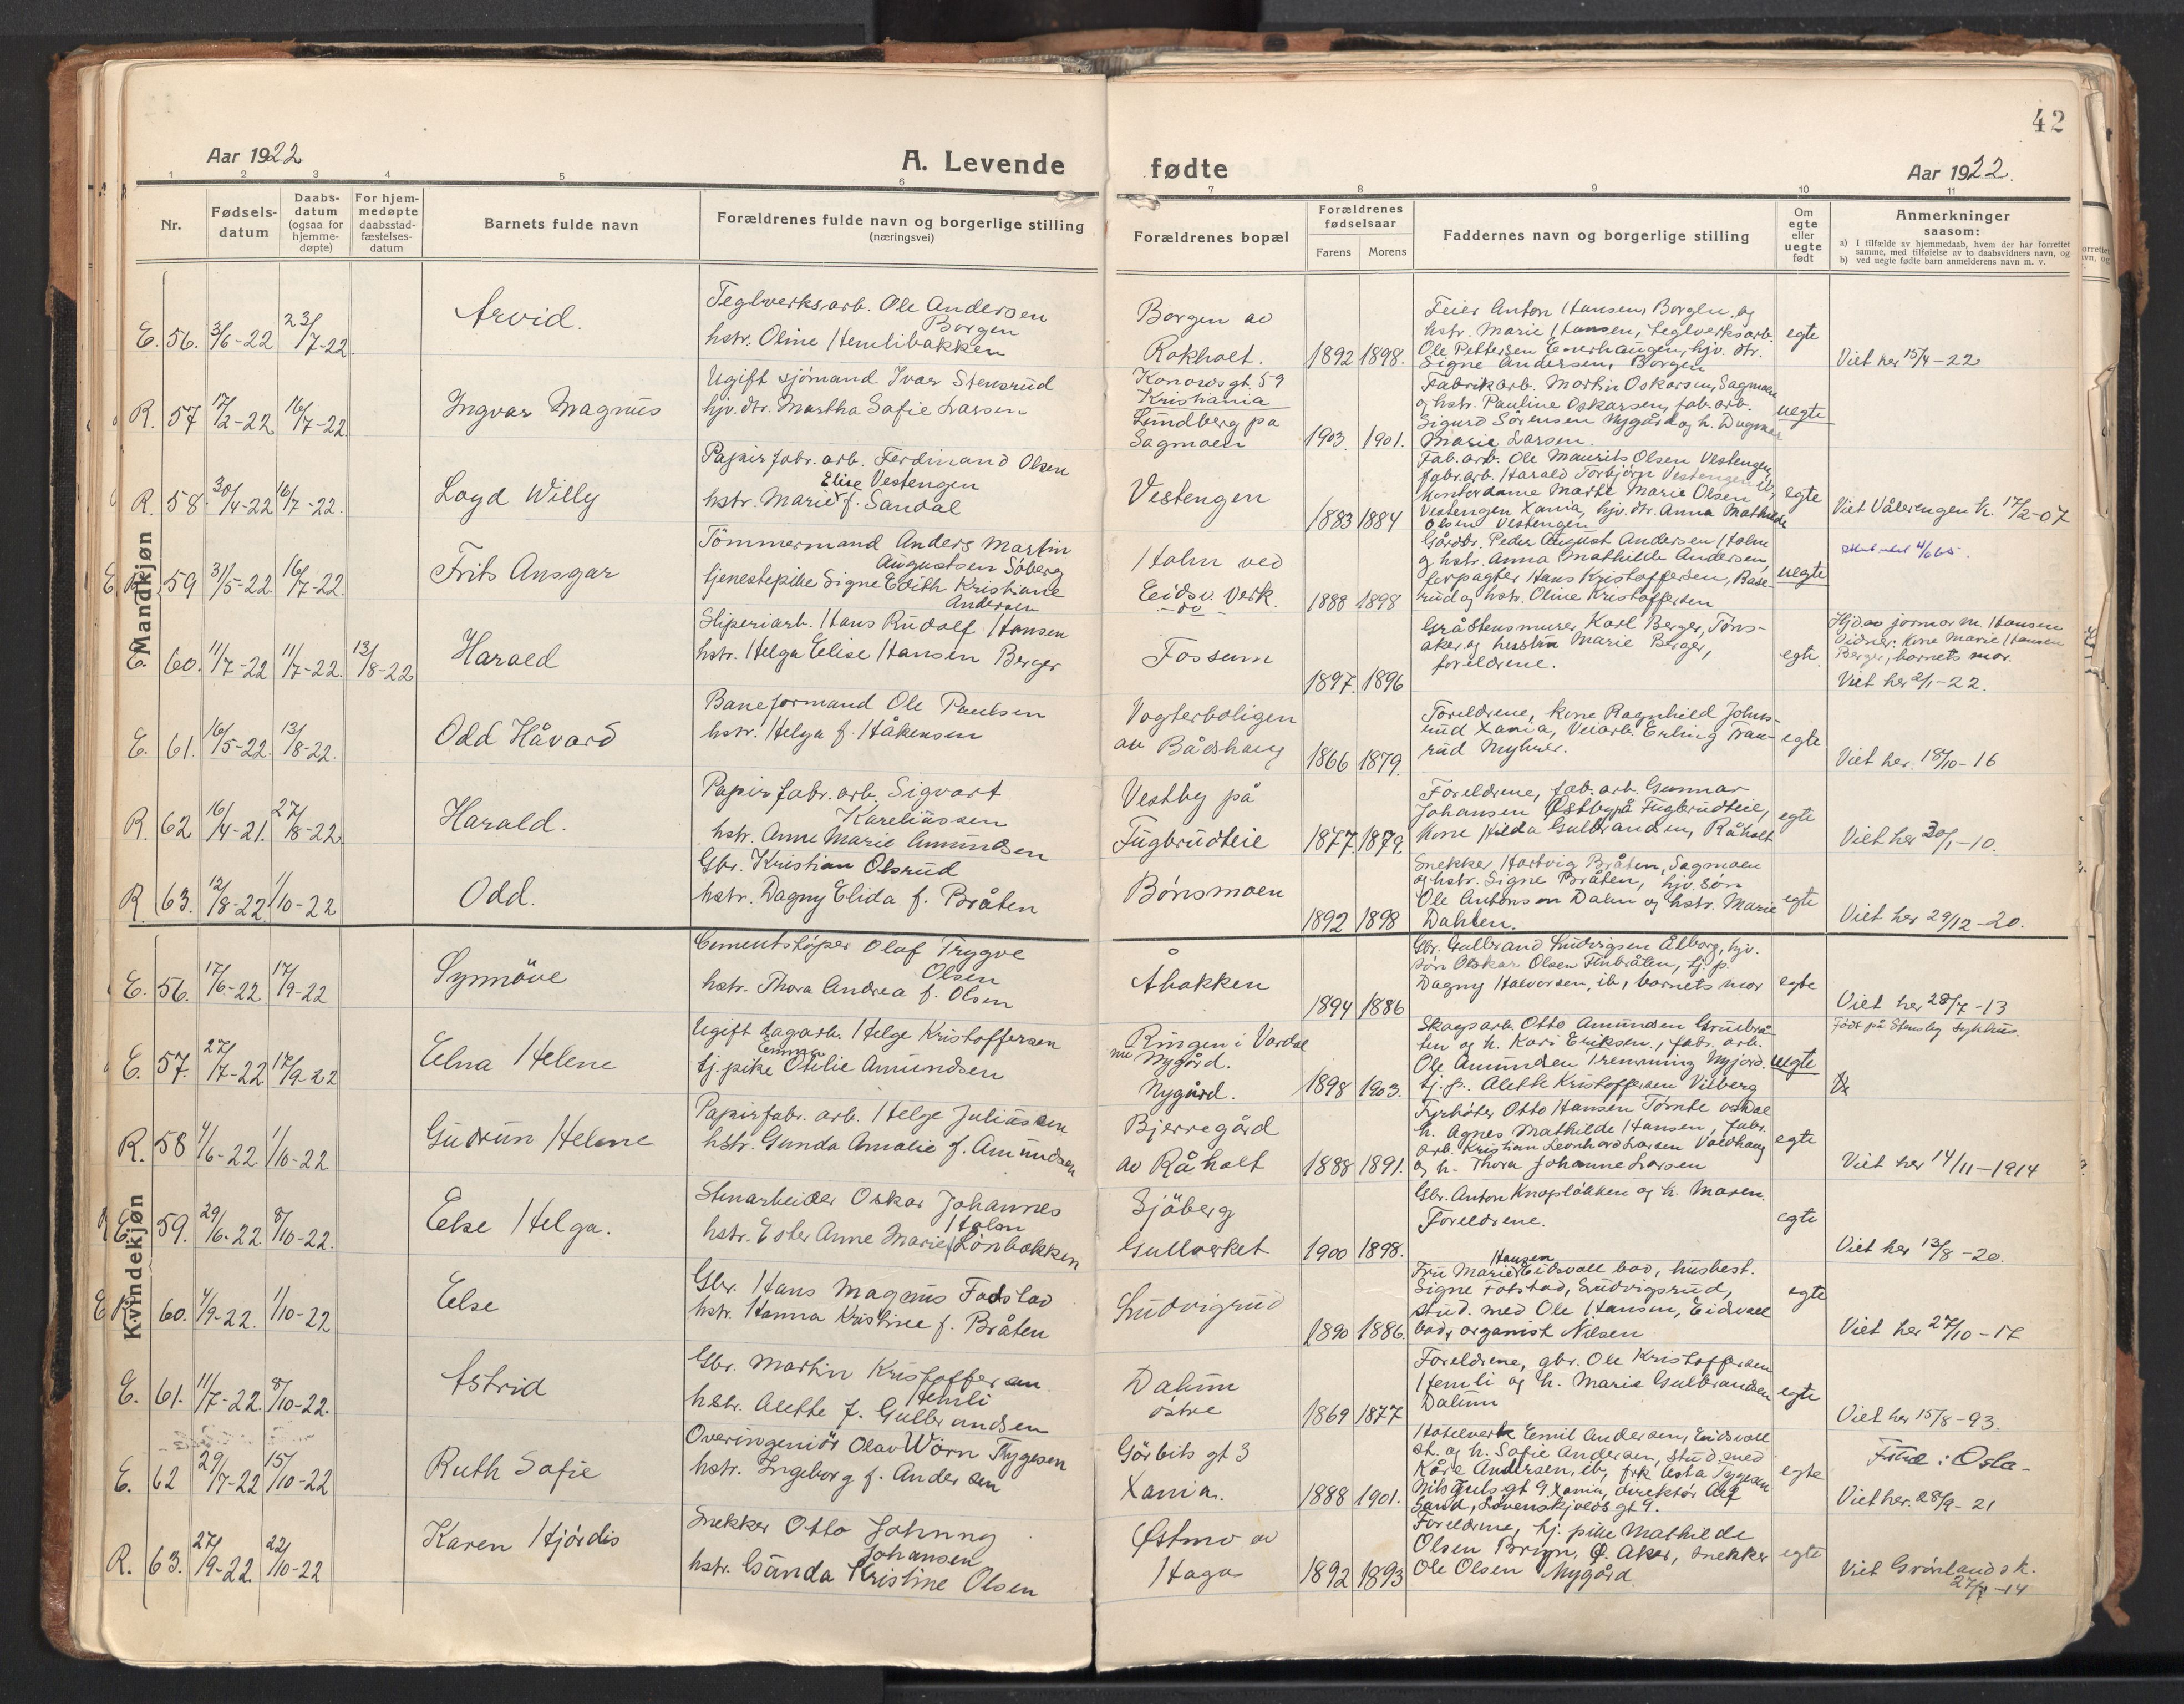 42
Aar 1922
A. Levende
fødte
Aar 1922.
1 2 3 4 5 6 7 8 9 10 11
Nr.
Fødsels-
datum
Daabs-
datum
(ogsaa for
hjemme-
døpte)
For hjem-
medøpte
daabsstad-
fæstelses-
datum
Barnets fulde navn
Forældrenes fulde navn og borgerlige stilling
(næringsvei)
Forældrenes bopæl
Forældrenes
fødselsaar
Farens Morens
Faddernes navn og borgerlige stilling
Om
egte
eller
uegte
født
Anmerkninger
saasom:
a) I tilfælde av hjemmedaab, hvem der har forrettet
samme, med tilføielse av to daabsvidners navn, og
b) ved uegte fødte barn anmelderens navn m. v.
Mandkjøn
E. 56. 3/6-22 23/7-22.
Arvid.
Teglverksarb. Ole Andersen
Borgen
hstr. Oline Hemlibakken
Borgen av
Rokholt.
1892 1898.
Feier Anton Hansen, Borgen, og
hstr. Marie Hansen, teglverksarb.
Ole Pettersen Enerhaugen, hjv. dtr.
Signe Andersen, Borgen
egte
Viet her 15/4-22
R. 57 17/2-22 16/7-22
Ingvar Magnus
Ugift sjömand Ivar Stensrud
hjv. dtr. Martha Sofie Larsen
Konowsgt. 59
Kristiania
Lundberg på
Sagmoen
1903. 1901.
Fabrikarb. Martin Oskarsen, Sagmoen
og hstr. Pauline Oskarsen, fab. arb.
Sigurd Sörensen Nygård og h. Dagmar
Marie Larsen.
uegte
R. 58. 30/4-22 16/7-22.
Loyd Willy
Papirfabr. arb. Ferdinand Olsen
Elise Vestengen
hstr. Marie f. Sandal
Vestengen
1883 1884
Fab. arb. Ole Maurits Olsen Vestengen,
fabr. arb. Harald Torbjörn Vestengen ib,
kontordame Marte Marie Olsen
Vestengen Xania, hjv. dtr. Anna Mathilde
Olsen Vestengen
egte
Viet Vålerengen k. 17/2-07
E. R. 59 31/5-22 16/7-22
Frits Ansgar
Tömmermand Anders Martin
Augustsen Söberg
tjenestepike Signe Edith Kristiane
Andersen
Holm ved
Eidsv. Verk.
- do -
1888 1898
Gårdbr. Peder August Andersen Holm
og hstr. Anna Mathilde Andersen,
forpagter Hans Kristoffersen, Base-
rud og hstr. Oline Kristoffersen
uegte
E. 60. 11/7-22 11/7-22. 13/8-22
Harald
Sliperiarb. Hans Rudolf Hansen
hstr. Helga Elise Hansen Berger
Fossum
1897. 1896
Gråstensmurer Karl Berger, Töns-
aker og hustru Marie Berger,
foreldrene.
egte.
Hjda jormor M. Hansen
Vidner: Kone Marie Hansen
Berger, barnets mor.
Viet her 2/1-22.
E. 61. 16/5-22. 13/8-22.
Odd Håvard
Baneformand Ole Paulsen
hstr. Helga f. Håkensen
Vogterboligen
av Bådshaug
1866 1879.
Foreldrene, kone Ragnhild Johns-
rud Xania, Veiarb. Erling Tran-
rud Myhrer.
egte
Viet her. 18/10-16
R. 62 16/4-21. 27/8-22.
Harald.
Papirfabr. arb. Sigvart
Kareliussen
hstr. Anne Marie Amundsen
Vestby på
Fugbrudteie
1877. 1879.
Foreldrene, fab. arb. Gunnar
Johansen Østby på Fugbrudteie,
kone Hilda Gulbrandsen, Råholt
egte
Viet her 30/1-10.
R. 63. 12/8-22. 1/10-22
Odd.
Gbr. Kristian Olsrud
hstr. Dagny Elida f. Bråten
Bönsmoen
1892 1898
Snekker Hartvig Bråten, Sagmoen
og hstr. Signe Bråten, hjv. sön
Ole Antonsen Dalen og hstr. Marie
Dahlen.
egte
Viet her 29/12-20.
Kvindekjøn
E. 56. 17/6-22 17/9-22
Synnöve
Cementstöper Olaf Trygve
Olsen
hstr. Thora Andrea f. Olsen
Åbakken
1894 1886
Gbr. Gulbrand Ludvigsen Elborg, hjv.
sön Oskar Olsen Finbråten, tj. p.
Dagny Halvorsen, ib, barnets mor
egte
Viet her 28/7-13
E. 57. 27/7-22. 17/9-22
Elna Helene
Ugift dagarb. Helge Kristoffersen
Emma
tj. pike Otelie Amundsen
Ringen i Vardal
nu Nygård.
Nygård.
1898 1903.
Skogsarb. Otto Amundsen Grusbrå-
ten og h. Kari Eriksen, fabr. arb.
Ole Amundsen Tremming Nyjord.
tj. p. Alethe Kristoffersen Vilberg
uegte
Född på Stensby sykhus.
R. 58 4/6-22. 1/10-22.
Gudrun Helene
Papirfabr. arb. Helge Juliussen
hstr. Gunda Amalie f. Amundsen
Bjerregård
av Råholt
1888 1891.
Fyrböter Otto Hansen Tömte
h. Agnes Mathilde Hansen, fabr.
arb. Kristian Leonhard Larsen
og h. Thora Johanne Larsen
egte
Viet her 14/11-1914
E. 59. 29/6-22. 8/10-22.
Else Helga.
Stenarbeider Oskar Johannes
Holm
hstr. Ester Anne Marie f. Lönbakken
Sjöberg
Gullverket
1900 1898.
Gbr. Anton Knapstökken og h. Maren.
Foreldrene.
egte
Viet her 13/8-20.
E R. 60. 4/9-22. 1/10-22
Else
Gbr. Hans Magnus Fadstad
hstr. Hanna Kristine f. Bråten
Ludvigrud
1890 1886.
Hansen
Fru Marie Eidsvoll bad, husbest.
Signe Fotstad, Ludvigsrud,
stud. med Ole Hansen, Eidsvoll
bad, organist Nilsen
egte
Viet her 27/10-17
E. 61. 11/7-22. 8/10-22.
Astrid
Gbr. Martin Kristoffersen
Hemli
hstr. Alette f. Gulbrandsen
Dalum
östre
1869 1877
Foreldrene, gbr. Ole Kristoffersen
Hemli og h. Marie Gulbrandsen
Dalum
egte
Viet her 15/8-93.
E. 62 29/7-22 15/10-22
Ruth Sofie
Overingeniör Olav Wörn Tygesen
hstr. Ingeborg f. Andersen
Görbits gt 3
Xania.
1888 1901.
Hotelvert Emil Andersen, Eidsvoll
st. og h. Sofie Andersen, stud. med
Kåre Andersen, ib, frk Asta Tygesen
Nils Juels gt 9 Xania, direktör Alf
Sand, Lövenskjolds gt 9.
egte
Viet her. 28/9-21
R. 63. 27/9-22. 22/10-22
Karen Hjördis
Snekker Otto Johnny
Johansen
hstr. Gunda Kristine Olsen
Østmo av
Haga
1892 1893
Foreldrene, tj. pike Mathilde
Olsen Bryn, Ø. Aker, snekker
Ole Olsen Nygård
egte
Viet Grönland sk.